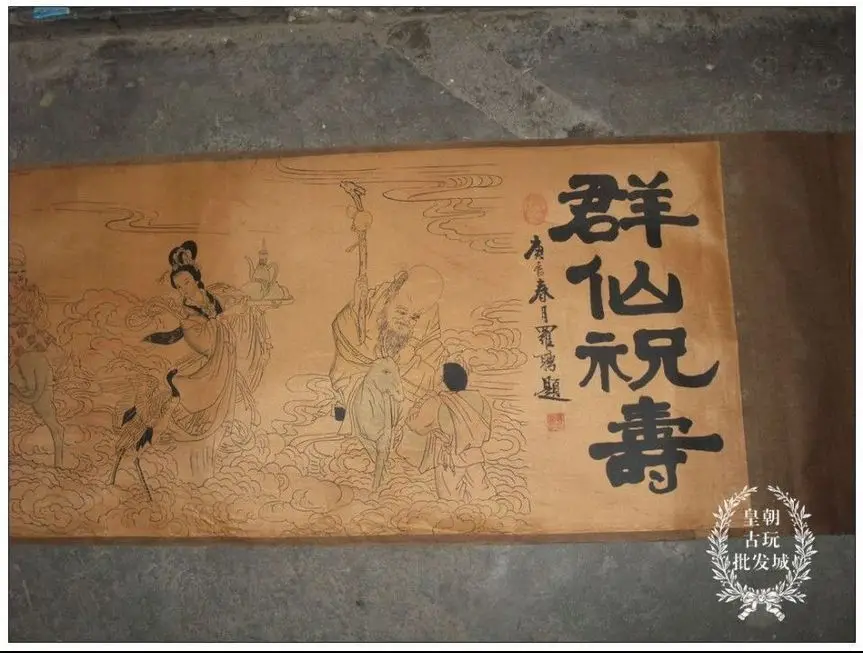 群仙祝壽
庚寅春月羅鴻題
皇朝
古玩
批发城